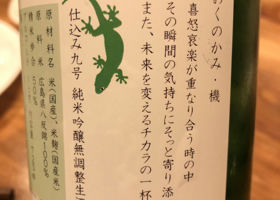 おくのかみ・機
喜怒哀楽が重なり合う時の中
その瞬間の気持ちにそっと寄り添
また、未来を変えるチカラの一杯
仕込み九号 純米吟醸無調整生酒
原材料名 米(国産)、米麹(国産米)
原料米 広島県八反錦100%
精米歩合 50%